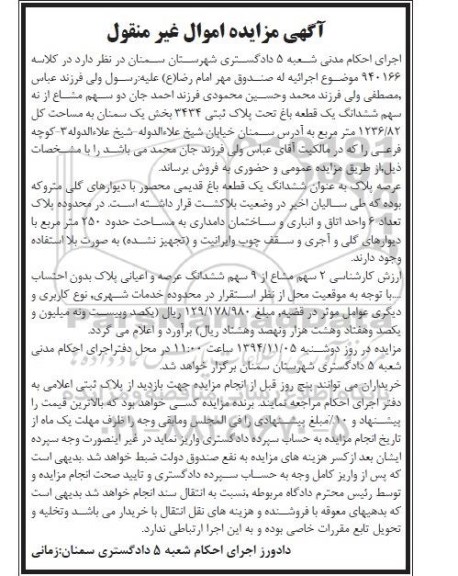 آگهی مزایده اموال غیر منقول
اجرای احکام مدنی شعبه ۵ دادگستری شهرستان سمنان در نظر دارد در کلاسه
۹۴۰۱۶۶ موضوع اجرائیه له صندوق مهر امام رضا(ع) علیه:رسول ولی فرزند عباس
,مصطفی ولی فرزند محمد وحسین محمودی فرزند احمد جان دو سهم مشاع از نه
سهم ششدانگ یک قطعه باغ تحت پلاک ثبتی ۳۴۳۴ بخش یک سمنان به مساحت کل
۱۲۳۶/۸۲ متر مربع به آدرس سمنان خیابان شیخ علاءالدوله- شیخ علاءالدوله۳-کوچه
فرعی را که در مالکیت آقای عباس ولی فرزند جان محمد می باشد را با مشخصات
ذیل,از طریق مزایده عمومی و حضوری به فروش برساند.
عرصه پلاک به عنوان ششدانگ یک قطعه باغ قدیمی محصور با دیوارهای گلی متروکه
بوده که طی سالیان اخیر در وضعیت بلاکشت قرار داشته است. در محدوده پلاک
تعداد ۶ واحد اتاق و انباری و ساختمان دامداری به مساحت حدود ۲۵۰ متر مربع با
دیوارهای گلی و آجری و سقف چوب وایرانیت و (تجهیز نشده) به صورت بلا استفاده
وجود دارند.
ارزش کارشناسی ۲ سهم مشاع از ۹ سهم ششدانگ عرصه و اعیانی پلاک بدون احتساب
...با توجه به موقعیت محل از نظر استقرار در محدوده خدمات شهری, نوع کاربری و
دیگری عوامل موثر در قضیه, مبلغ ۱۲۹/۱۷۸/۹۸۰ ریال (یکصد وبیست ونه میلیون و
یکصد وهفتاد وهشت هزار ونهصد وهشتاد ریال) برآورد و اعلام می گردد.
مزایده در روز دوشنبه ۱۳۹۴/۱۱/۰۵ ساعت ۱۱:۰۰ در محل دفتراجرای احکام مدنی
شعبه ۵ دادگستری شهرستان سمنان برگزار خواهد شد.
خریداران می توانند پنج روز قبل از انجام مزایده جهت بازدید از پلاک ثبتی اعلامی به
دفتر اجرای احکام مراجعه نمایند. برنده مزایده کسی خواهد بود که بالاترین قیمت را
پیشنهاد و ۱۰٪مبلغ پیشنهادی را فی المجلس ومابقی وجه را ظرف مهلت یک ماه از
تاریخ انجام مزایده به حساب سپرده دادگستری واریز نماید در غیر اینصورت وجه سپرده
ایشان بعد ازکسر هزینه های مزایده به نفع صندوق دولت ضبط خواهد شد .بدیهی است
که پس از واریز کامل وجه به حساب سپرده دادگستری و تایید صحت انجام مزایده و
توسط رئیس محترم دادگاه مربوطه ,نسبت به انتقال سند انجام خواهد شد بدیهی است
که بدهیهای معوقه با فروشنده و هزینه های نقل انتقال با خریدار می باشد وتخلیه و
تحویل تابع مقررات خاصی بوده و به این اجرا ارتباطی ندارد.
دادورز اجرای احکام شعبه ۵ دادگستری سمنان:زمانی